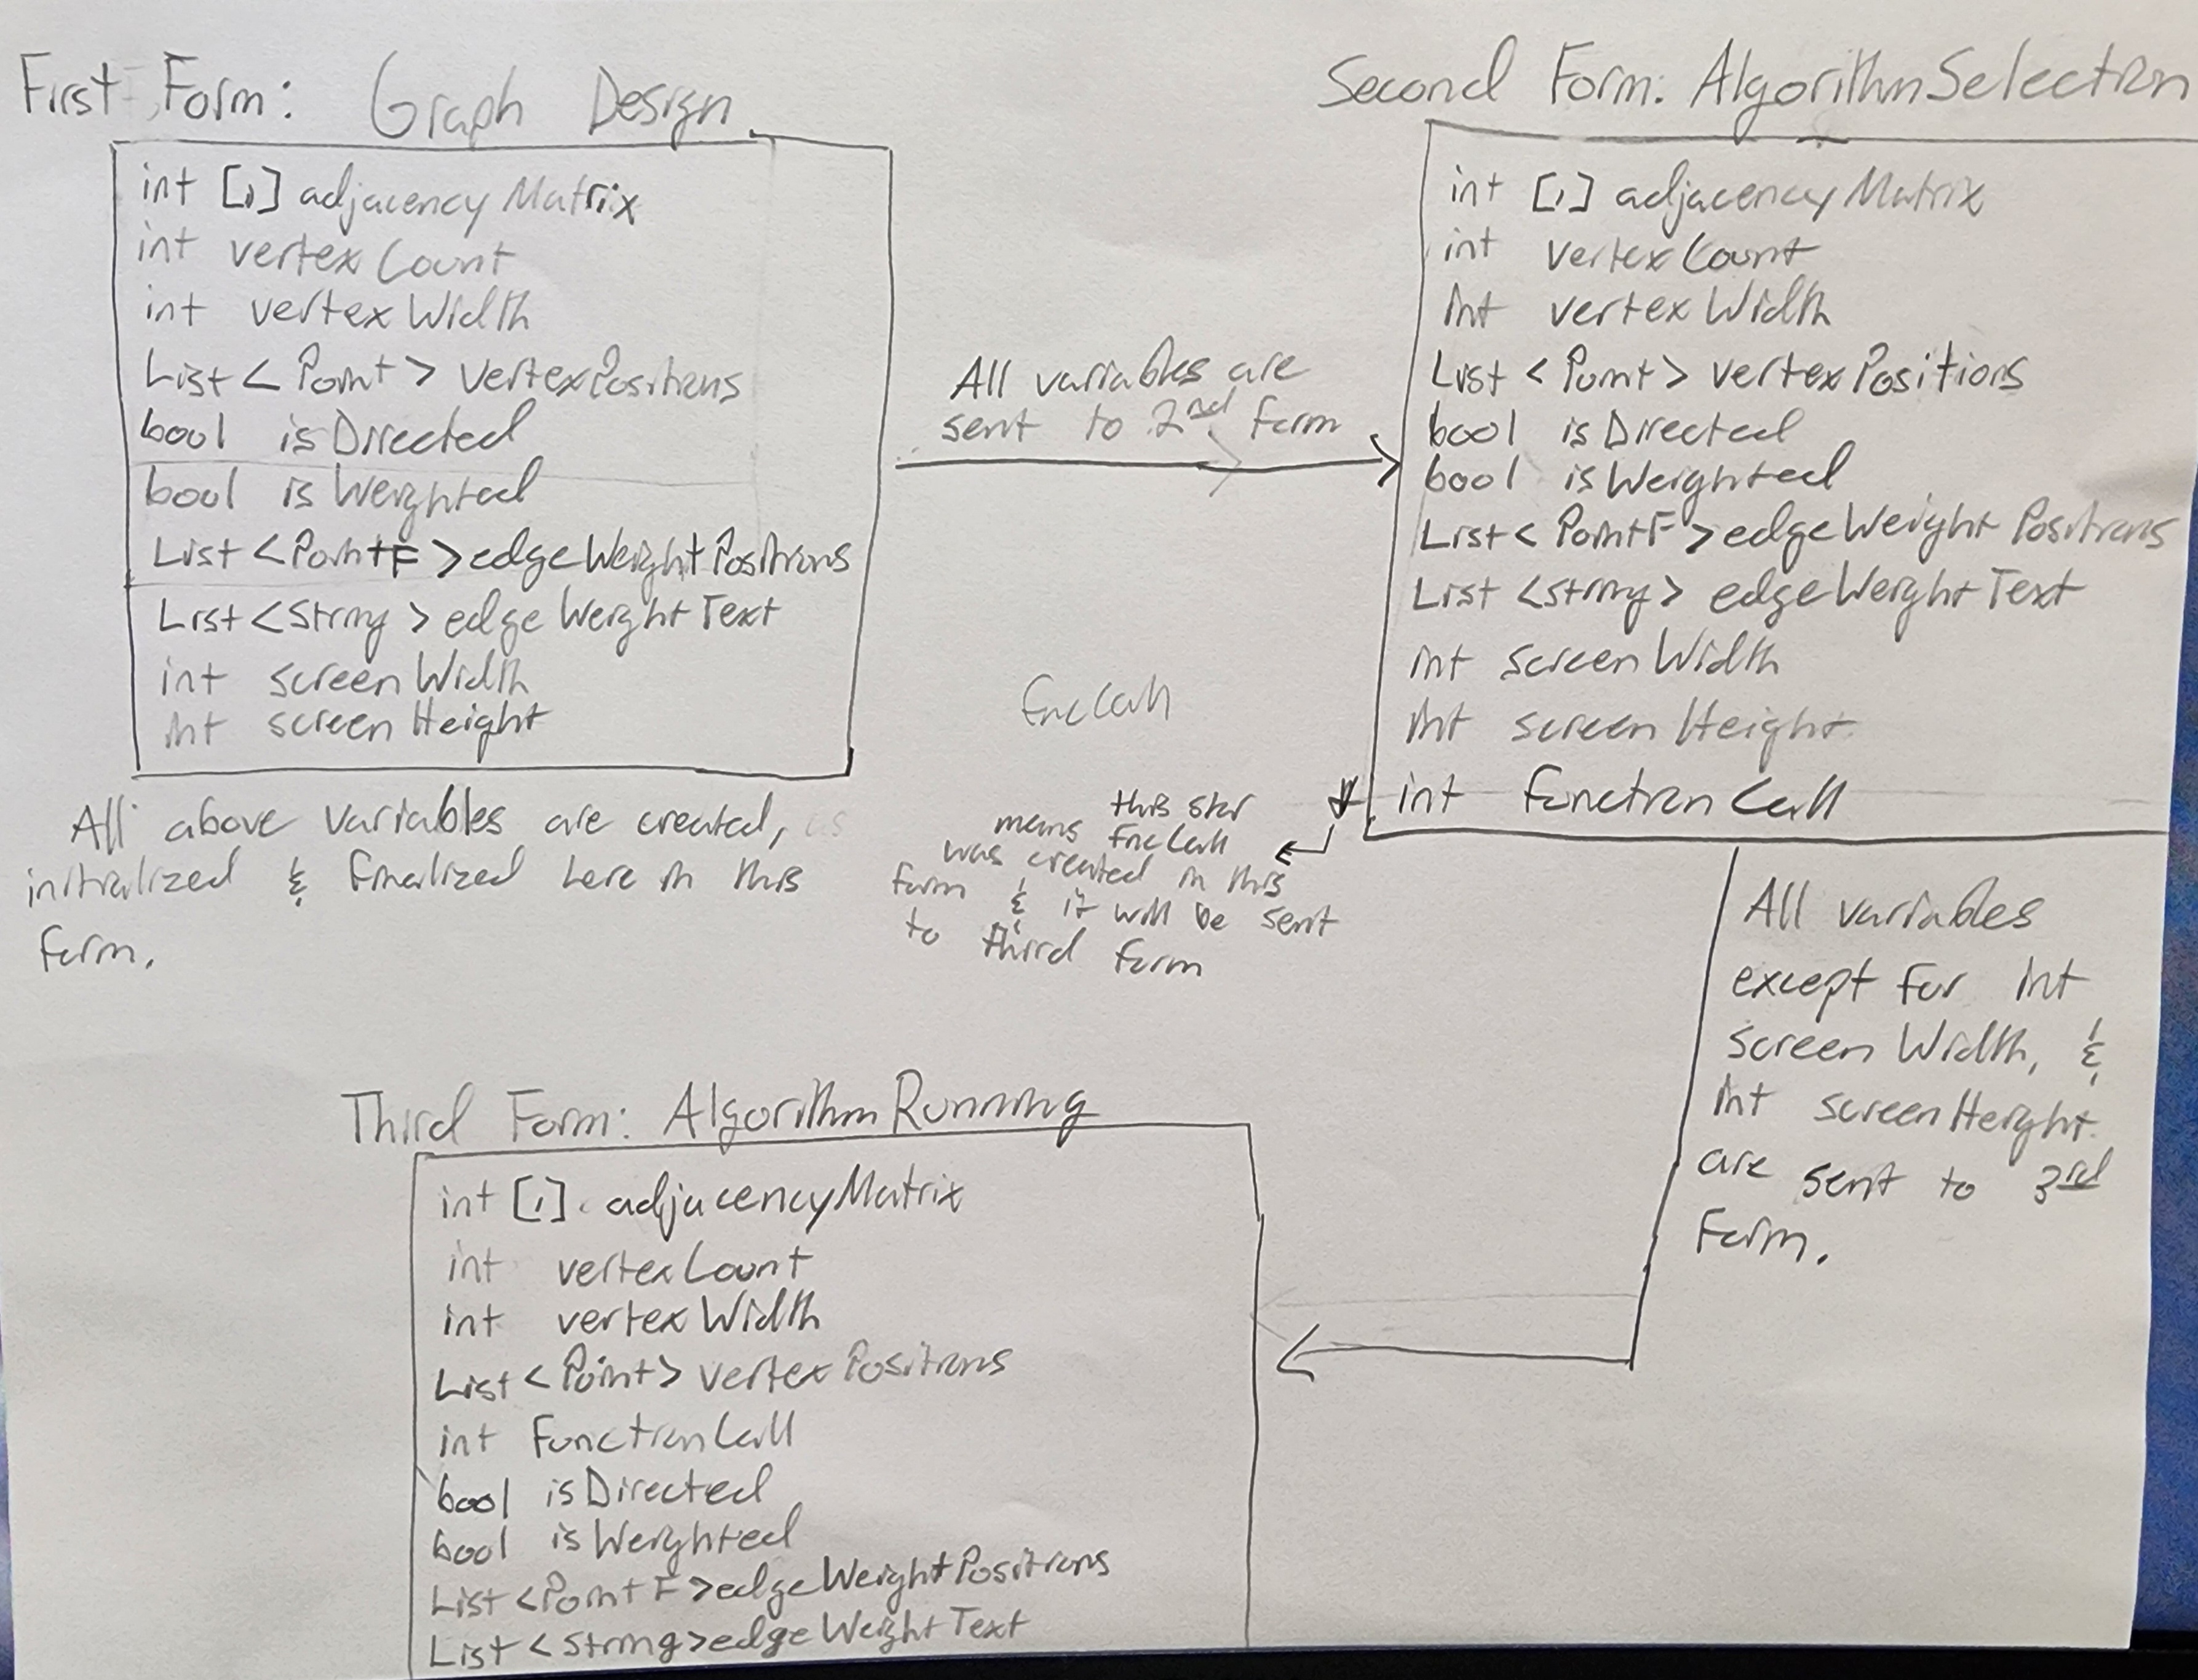 First Form: Graph Design
int [,] adjacencyMatrix
int vertexCount
int vertexWidth
List <Point> vertexPositions
bool isDirected
bool isWeighted
List <PointF> edgeWeightPositions
List <String> edgeWeightText
int screenWidth
int screenHeight
All above variables are created,
initialized & finalized here in this
form.
All variables are
sent to 2nd form
Second Form: AlgorithmSelection
int [,] adjacencyMatrix
int vertexCount
int vertexWidth
List <Point> vertexPositions
bool isDirected
bool isWeighted
List <PointF> edgeWeightPositions
List <string> edgeWeightText
int screenWidth
int screenHeight
int functionCall
fncCall
this star
means fncCall
was created in this
form & it will be sent
to third form
All variables
except for int
screenWidth, &
int screenHeight
are sent to 3rd
Form.
Third Form: AlgorithmRunning
int [,] adjacencyMatrix
int vertexCount
int vertexWidth
List <Point> vertexPositions
int functionCall
bool isDirected
bool isWeighted
List <PointF> edgeWeightPositions
List <string> edgeWeightText